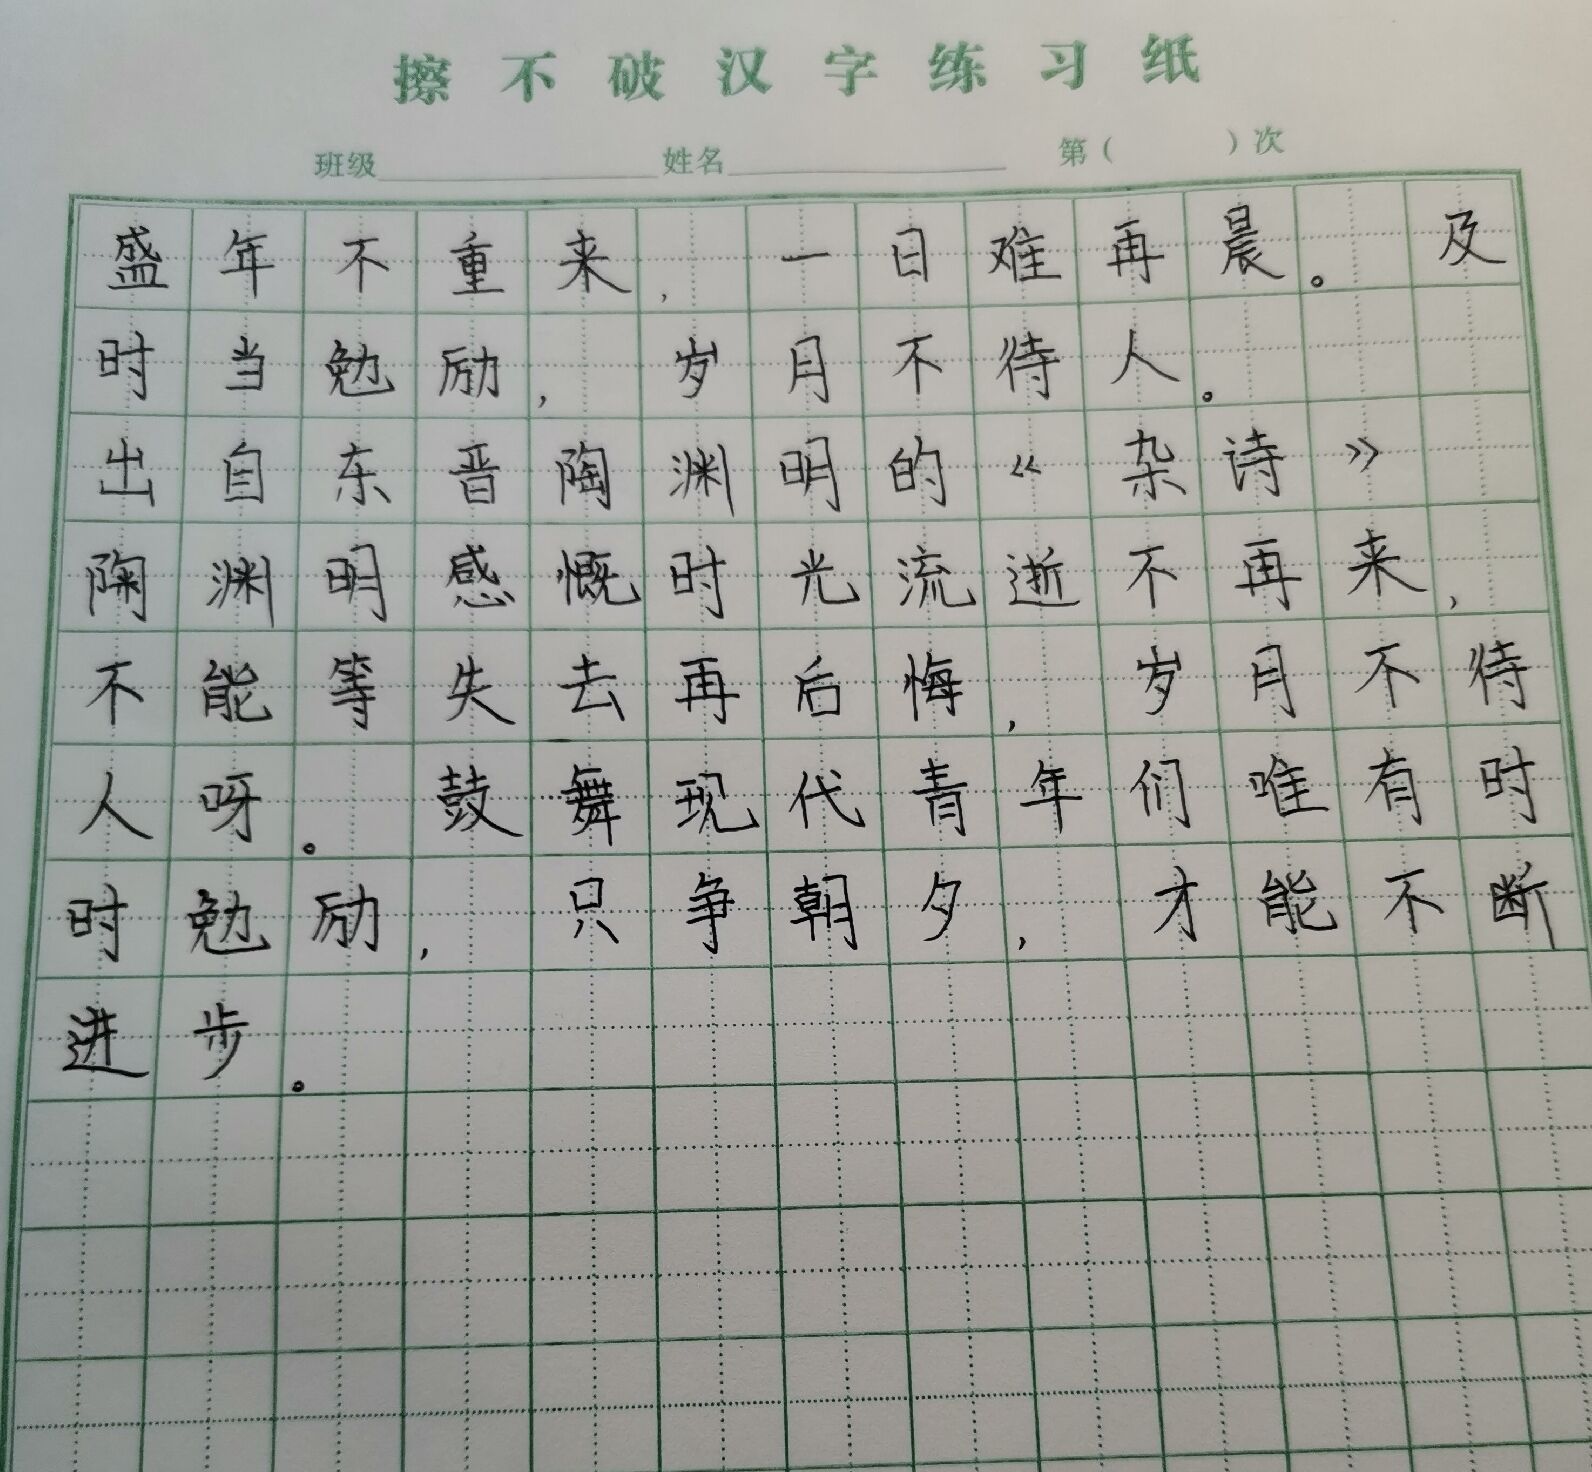 擦不破汉字练习纸
班级 姓名 第( )次
盛年不重来,一日难再晨。及
时当勉励,岁月不待人。
出自东晋陶渊明的《杂诗》
陶渊明感慨时光流逝不再来,
不能等失去再后悔,岁月不待
人呀。鼓舞现代青年们唯有时
时勉励,只争朝夕,才能不断
进步。